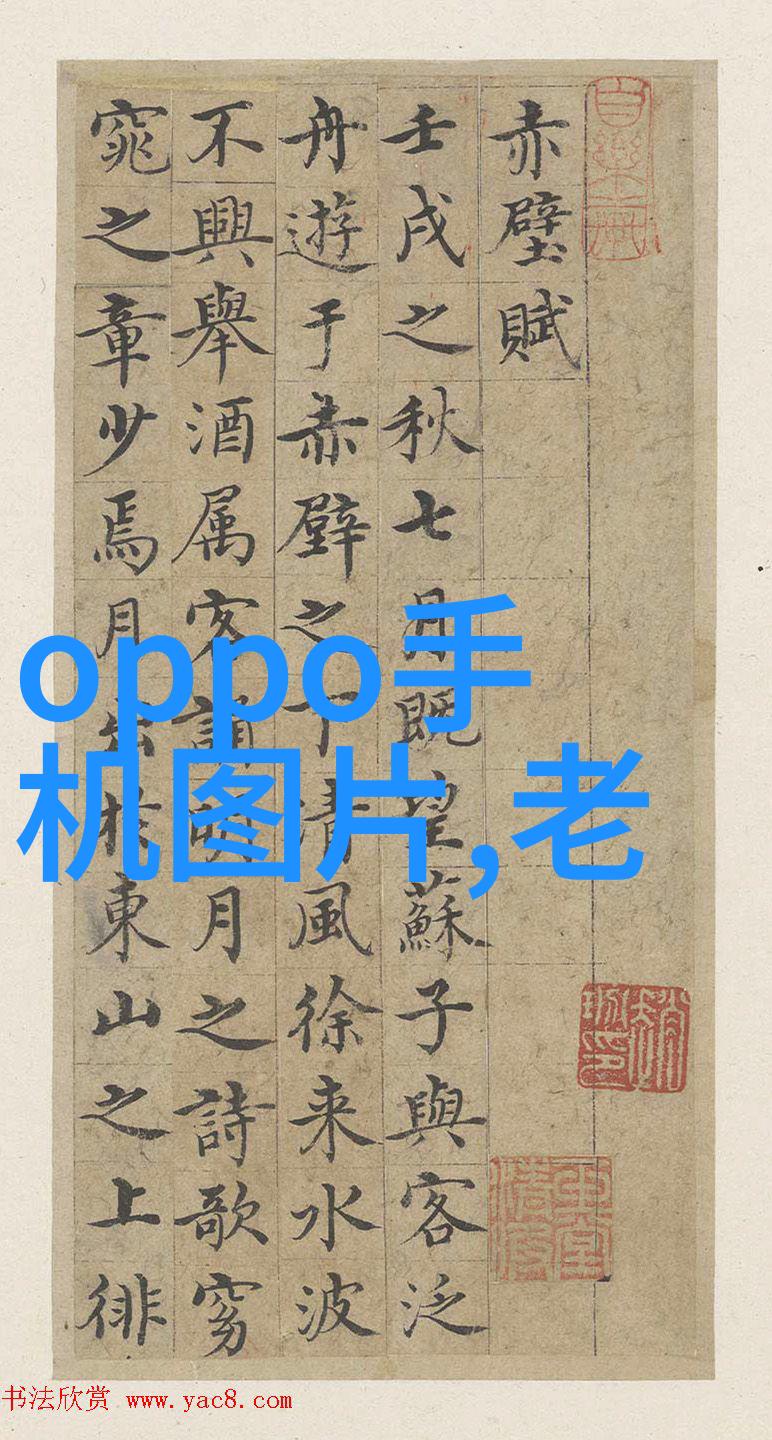 赤壁賦
壬戌之秋七月既望蘇子與客泛
舟遊于赤壁之下清風徐来水波
不興舉酒属客誦明月之詩歌窈
窕之章少焉月出於東山之上徘
oppo手
机图片,老
书法欣赏 www.yac8.com